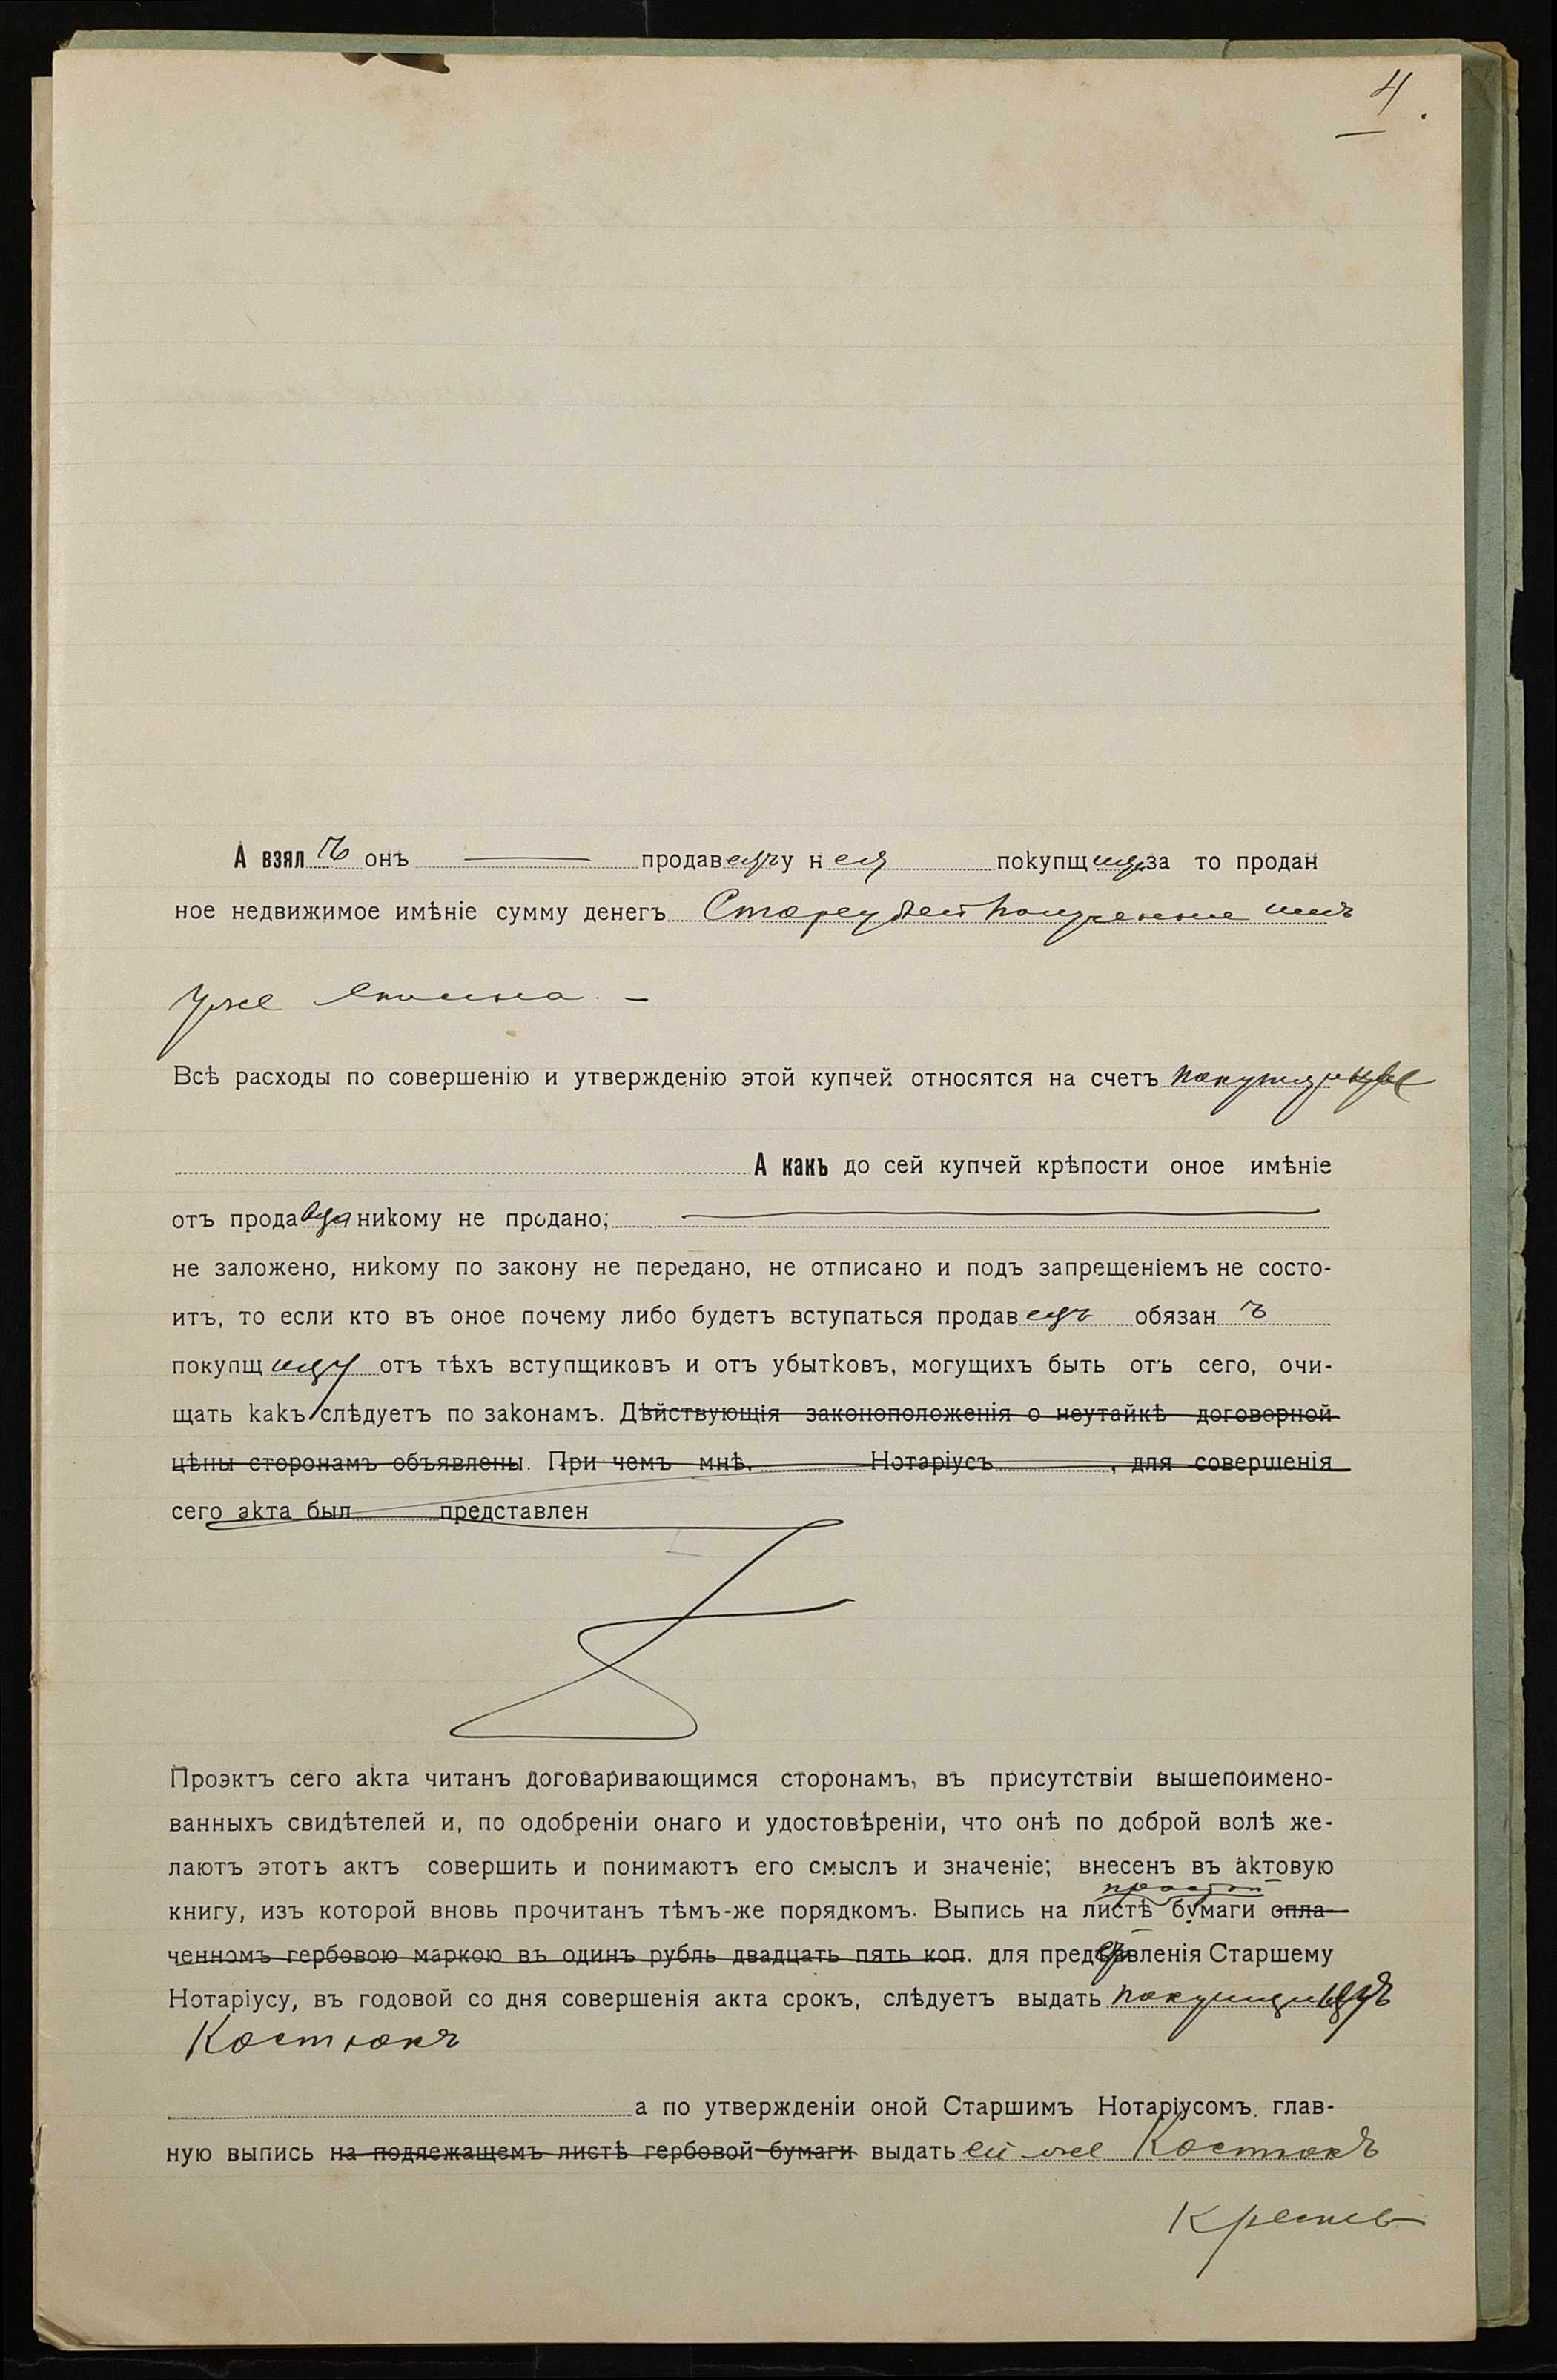 4.
А взялъ онъ продавецъ у нея покупщицы за то продан
ное недвижимое имѣніе сумму денегъ Сто рублей полученные имъ
уже сполна. –
Всѣ расходы по совершенію и утвержденію этой купчей относятся на счетъ покупщицы
А какъ до сей купчей крѣпости оное имѣніе
отъ продавца никому не продано;
не заложено, никому по закону не передано, не отписано и подъ запрещеніемъ не состо-
итъ, то если кто въ оное почему либо будетъ вступаться продавецъ обязанъ
покупщицу отъ тѣхъ вступщиковъ и отъ убытковъ, могущихъ быть отъ сего, очи-
щать какъ слѣдуетъ по законамъ. Дѣйствующія законоположенія о неутайкѣ договорной
цѣны сторонамъ объявлены. При чемъ мнѣ, Нотаріусъ , для совершенія
сего акта был представлен
Проэктъ сего акта читанъ договаривающимся сторонамъ, въ присутствіи вышепоимено-
ванныхъ свидѣтелей и, по одобреніи онаго и удостовѣреніи, что онѣ по доброй волѣ же-
лаютъ этотъ актъ совершить и понимаютъ его смыслъ и значеніе; внесенъ въ актовую
простой
книгу, изъ которой вновь прочитанъ тѣмъ-же порядкомъ. Выпись на листѣ бумаги опла-
ченномъ гербовою маркою въ одинъ рубль двадцать пять коп. для предъявленія Старшему
Нотаріусу, въ годовой со дня совершенія акта срокъ, слѣдуетъ выдать покупщицѣ
Костюкъ
а по утвержденіи оной Старшимъ Нотаріусомъ, глав-
ную выпись на подлежащемъ листѣ гербовой бумаги выдать ей же Костюкъ